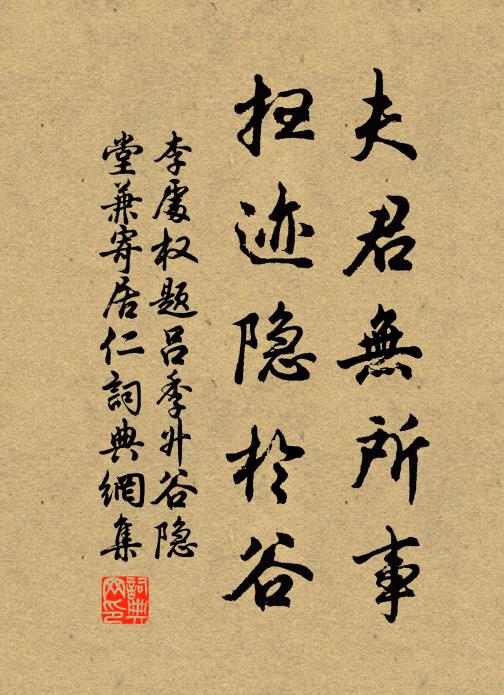 夫君無所事
扫迹隐於谷
李處权题吕季升谷隐
堂兼寄居仁詞典網集
詞典
网印